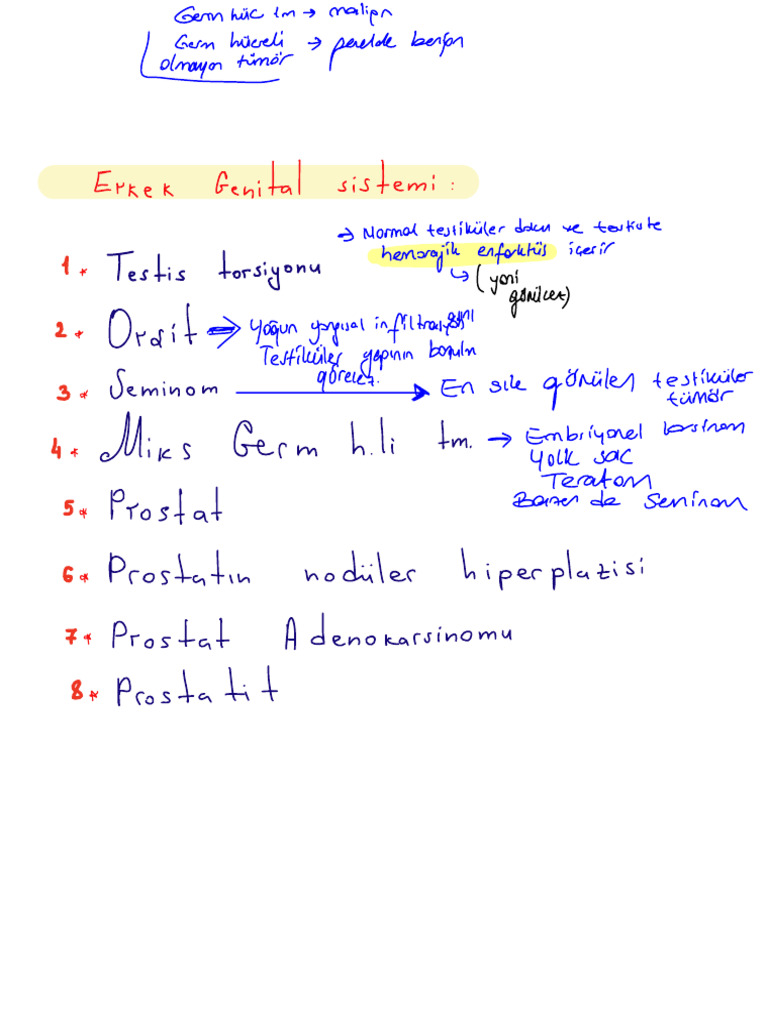 Germ hüc tm → malign
Germ hücreli → genelde benign
olmayan tümör
Erkek Genital sistemi:
1* Testis torsiyonu
→ Normal testiküler doku ve
hemorajik enfarktüs içerir
↳ (yeni
görülcek)
2* Orşit ⇒ Yoğun yangısal infiltrasyonu
Testiküler yapının
3* Seminom → En sık görülen testiküler
tümör
4* Miks Germ h.li tm. → Embriyonel karsinom
Yolk sac
Teratom
Bazen de Seminom
5* Prostat
6* Prostatın nodüler hiperplazisi
7* Prostat Adenokarsinomu
8* Prostatit